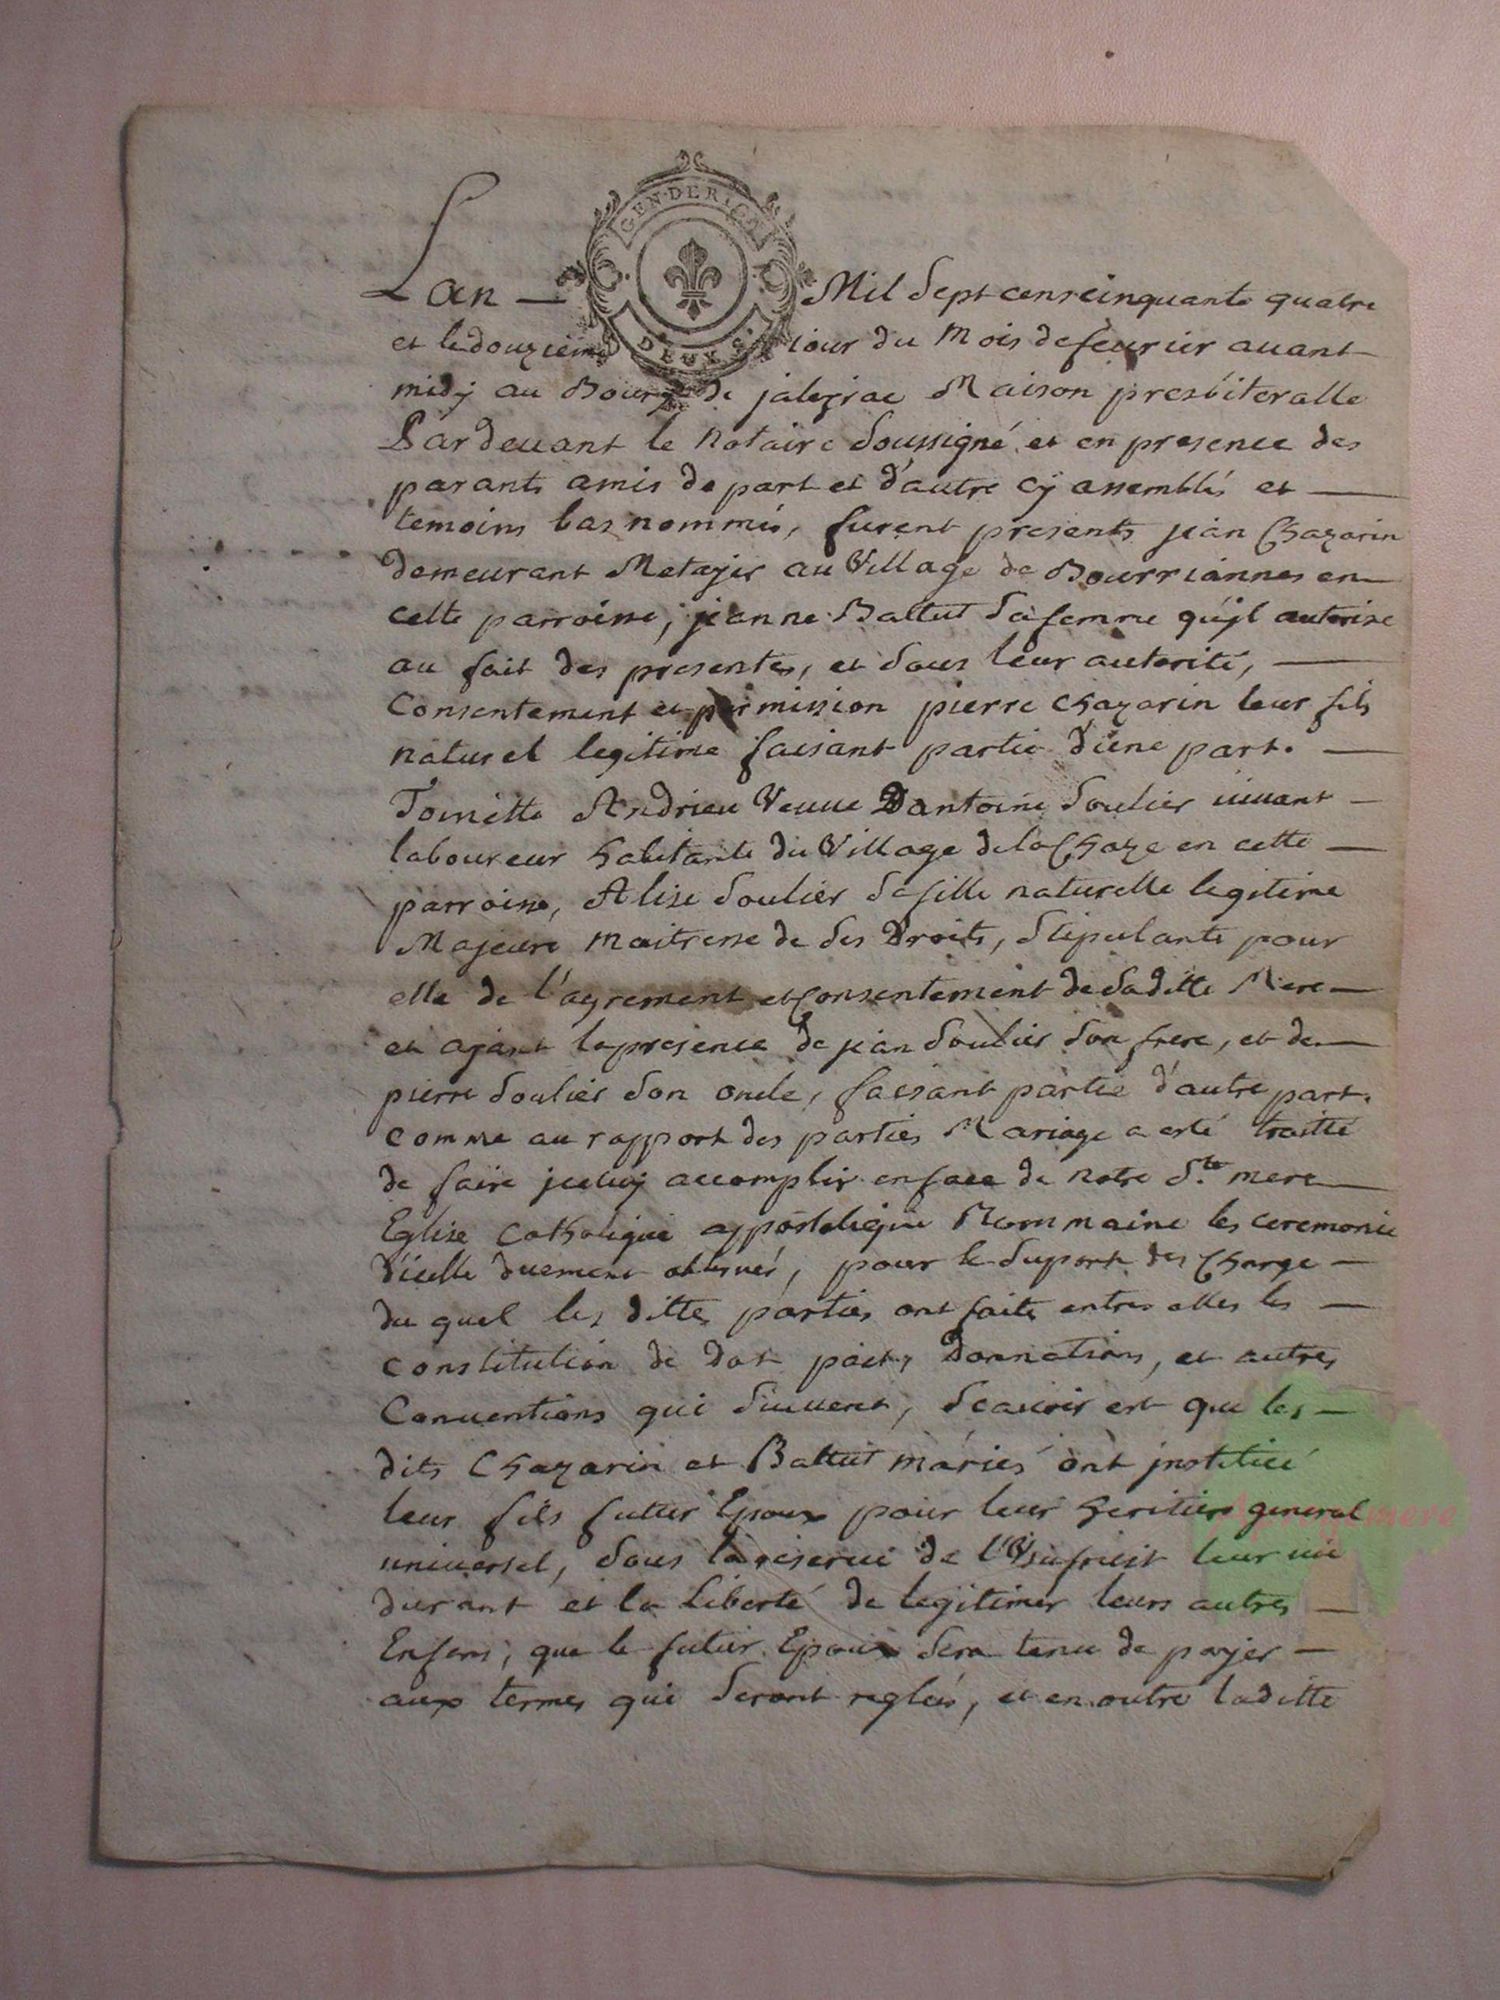 GEN·DE RIOM
DEUX S
Lan — Mil Sept cens cinquante quatre
et le douzieme iour du Mois de feurier auant
midy au Bourg de jaleyrac Maison presbiteralle
Pardeuant le Notaire Soussigné et en presence des
parants amis de part et d'autre cy assemblés et —
temoins bas nommés, furent presents jean Chazarin
demeurant Metayer au Village de Bourriannes en
cette parroisse, jeanne Battut Sa femme qu'jl autorise
au fait des presentes, et Sous leur autorité, —
Consentement et permission pierre Chazarin leur fils
naturel legitime faisant partie d'une part. —
Toinette Andrieu Veuue Dantoine Soulier viuant —
laboureur habitante du Village de la Chaze en cette —
parroisse, Alise Soulier Sa fille naturelle legitime
Majeure maitresse de Ses Droits, Stipulante pour
elle de l'agrement et Consentement de Saditte Mere —
et ajant la presence de jean Soulier Son frere, et de —
pierre Soulier Son oncle, faisant partie d'autre part.
Comme au rapport des parties Mariage a esté traitté
de faire jceluy accomplir en face de Notre Ste. mere —
Eglise Catholique appostolique Rommaine les ceremonie
d'icelle duement obserués, pour le Suport des Charge —
du quel les dittes parties ont faite entres elles les —
Constitution de dot pacts Donnations, et autres
Conuentions qui Suiuent, Scauoir est que les —
dits Chazarin et Battut mariés ont jnstitué
leur fils futur Epoux pour leur heritier general
uniuersel, Sous la reserue de l'Usufruit leur uie
durant et la Liberté de legitimer leurs autres —
Enfans, que le futur Epoux Sera tenu de payer —
aux termes qui Seront reglés, et en outre laditte